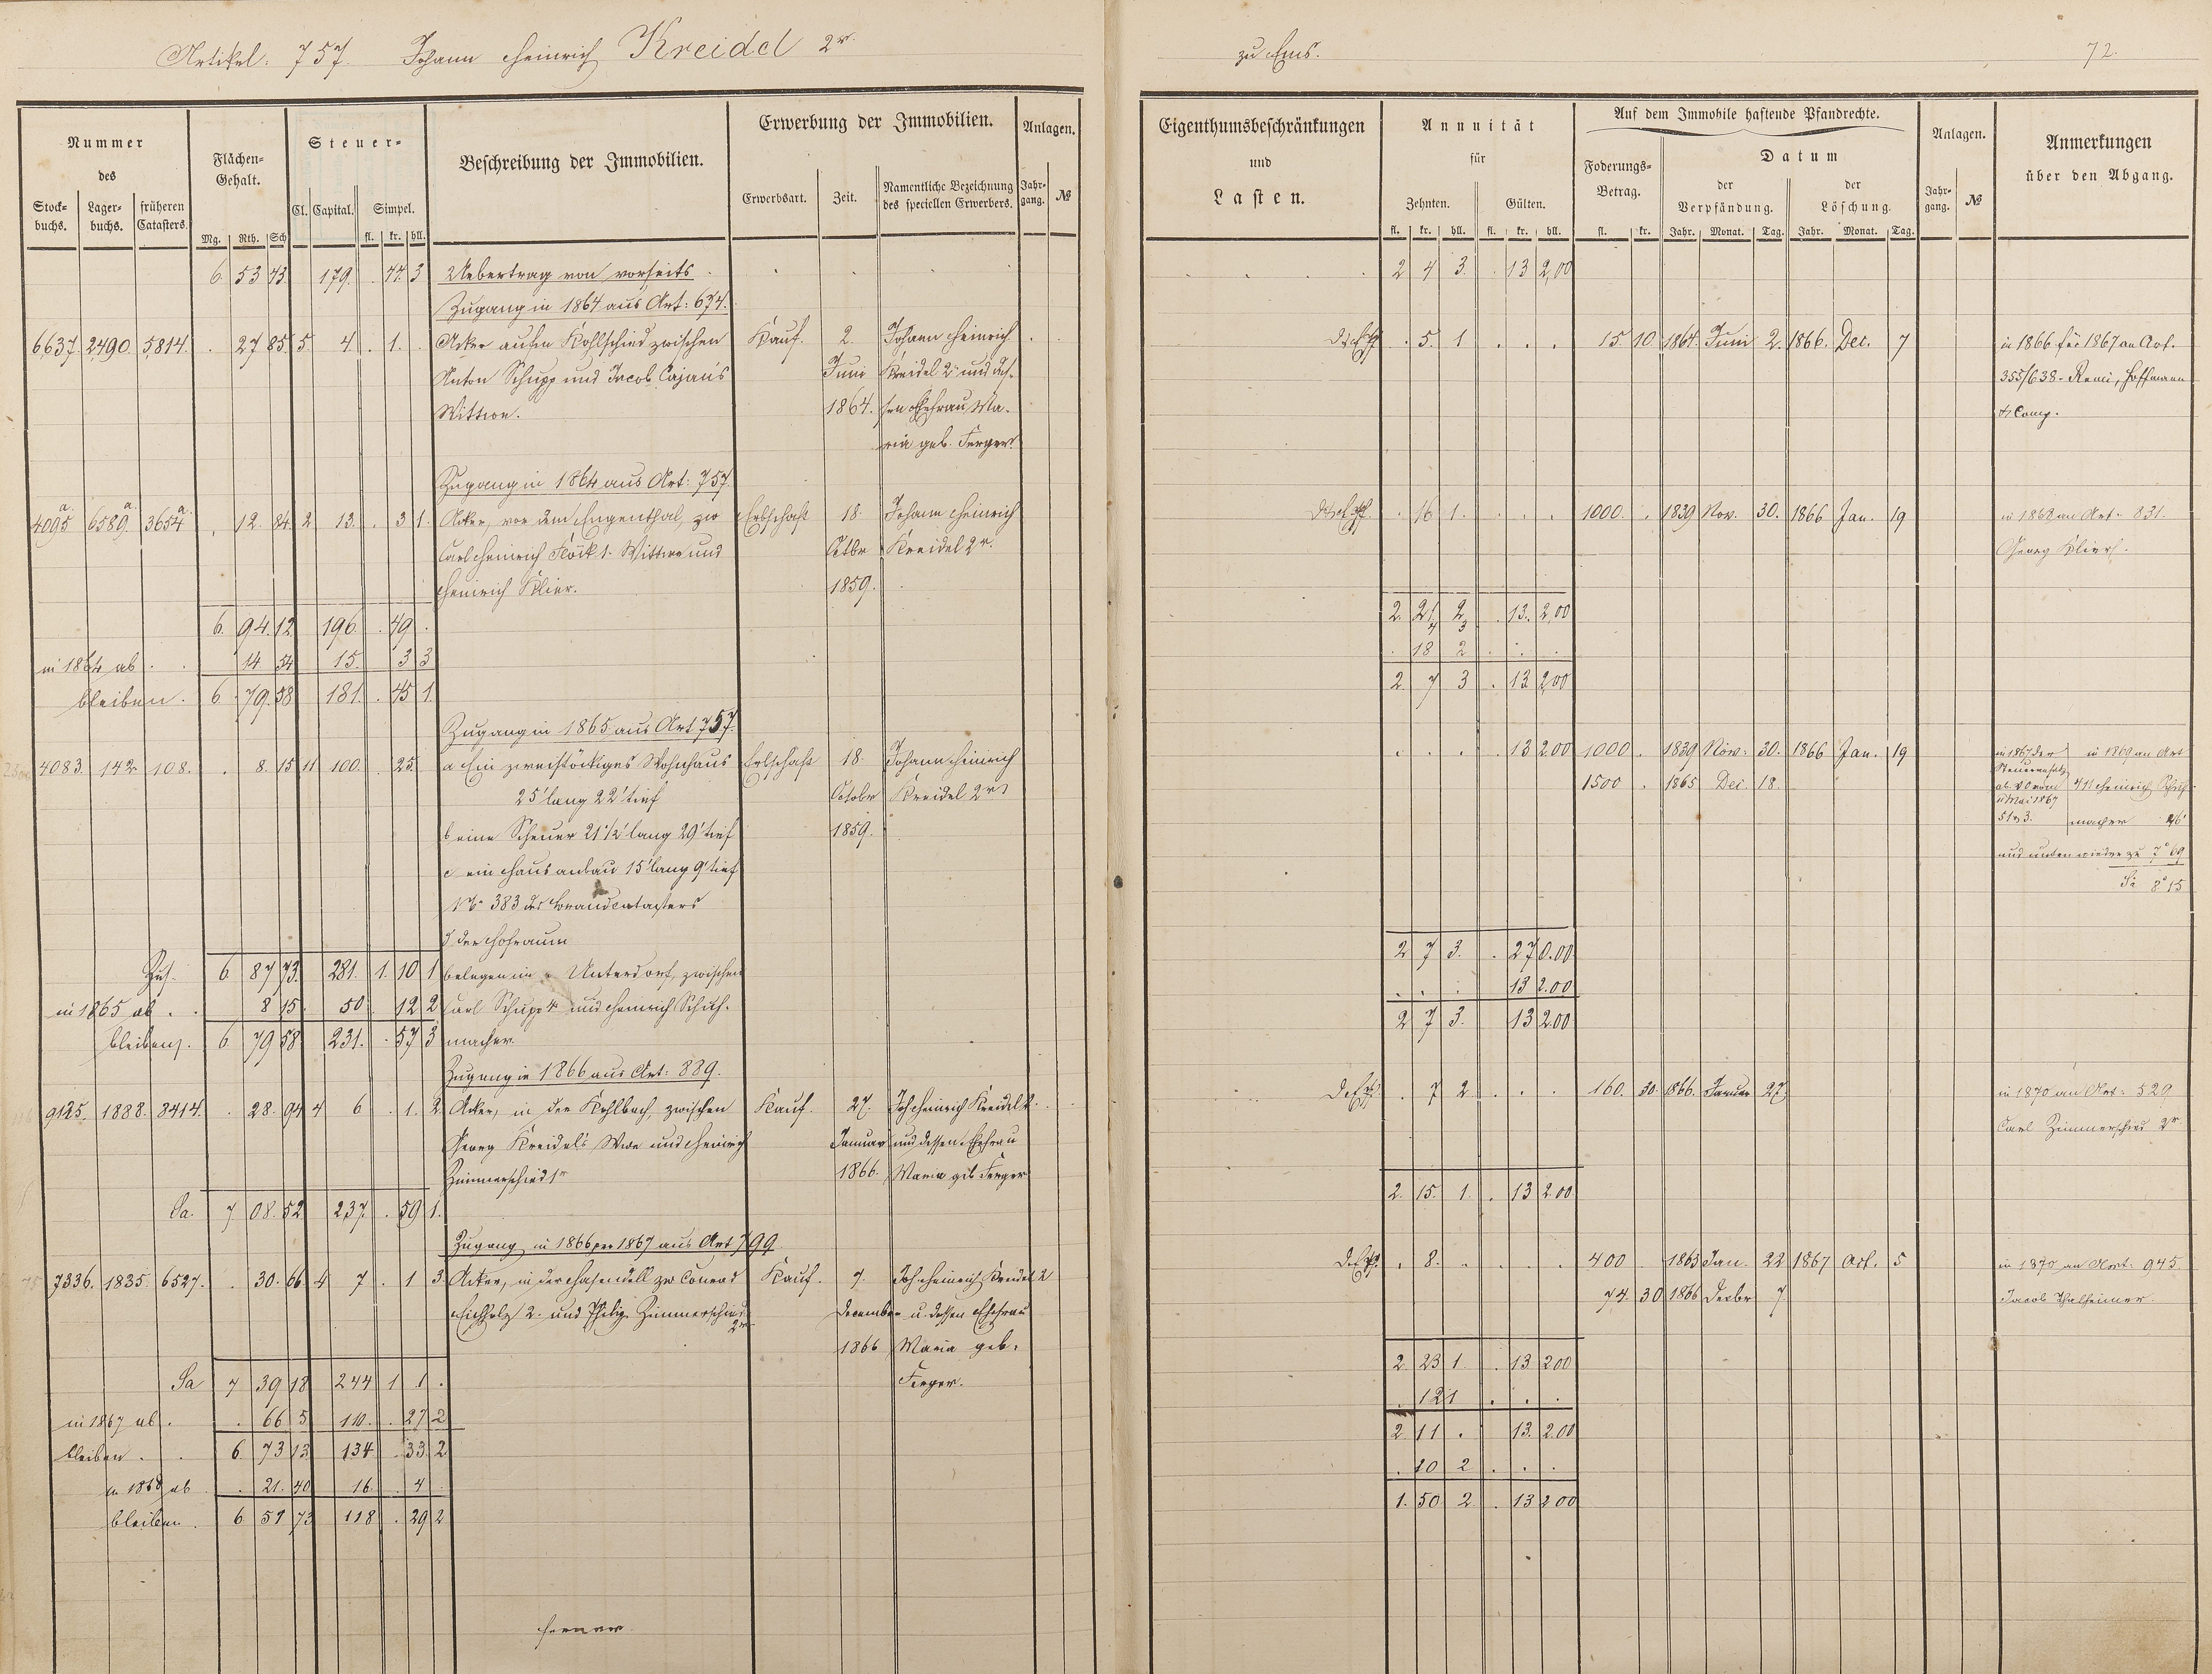 Artikel: 757. Johann Heinrich Kreidel 2r.
zu Ems. 72.
Nummer des
Stockbuchs. Lagerbuchs. früheren Catasters.
Flächen-Gehalt. Mg. Rth. Sch
Steuer- Cl. Capital. Simpel. fl. kr. hll.
Beschreibung der Immobilien.
Erwerbung der Immobilien.
Erwerbsart. Zeit. Namentliche Bezeichnung des speciellen Erwerbers.
Anlagen. Jahrgang. №
Eigenthumsbeschränkungen und Lasten.
Annuität für Zehnten. Gülten. fl. kr. hll. fl. kr. hll.
Auf dem Immobile haftende Pfandrechte.
Foderungs-Betrag. fl. kr.
Datum der Verpfändung. der Löschung.
Jahr. Monat. Tag. Jahr. Monat. Tag.
Anlagen. Jahrgang. №
Anmerkungen über den Abgang.
6. 53 43. 179. . 44. 3 Uebertrag von vorseits . . . . 2 4 3. . 13 2,00
Zugang in 1864 aus Art: 674.
6637. 2490. 5814. . 27 85. 5 4. . 1. . Acker aufm Kohlschied zwischen Kauf. 2. Johann Heinrich . 5. 1 . . . 15 10 1864. Juni 2. 1866. Dec. 7 in 1866 für 1867 an Art.
Anton Schupp und Jacob Cajan's Juni Kreidel 2r und des- 355/638. Remi, Hoffmann
Wittwe. 1864. sen Ehefrau Ma- & Comp.
ria geb. Ferger.
Zugang in 1864 aus Art: 757.
4095a 6589.a 3654a . 12. 84. 2 13. . 3 1. Acker, vor dem Engenthal, zw Erbschaft 18. Johann Heinrich . 16 1. . . . 1000. . 1839 Nov. 30. 1866 Jan. 19 in 1868 an Art. 831.
Carl Heinrich Flöck 1. Wittwe und Octbr Kreidel 2r. Georg Klier.
Heinrich Klier. 1859.
6. 94. 12 196. . 49 . 2. 21 2 . 13. 2,00
in 1864 ab . . 14 54 15. . 3 3 . 18 2 . . .
bleiben. 6. 79. 58 181. . 45 1. 2. 7 3 . 13 2,00
Zugang in 1865 aus Art 757.
4083. 142 108. . 8. 15 11 100. . 25. a Ein zweistöckiges Wohnhaus Erbschaft 18. Johann Heinrich . . . . 13 2.00 1000. . 1839 Nov. 30. 1866 Jan. 19 in 1867 der in 1869 an Art
25' lang 22' tief Octobr Kreidel 2r 1500 . 1865 Dei. 18. Steueransatz
b eine Scheuer 21½' lang 29' tief 1859. 11 Mai 1867
c ein Hausanbau 15' lang 9' tief und unten wieder zu 7° 69
No 383 des Brandcatasters Sa 8° 15
d der Hofraum
Zus. 6 87 73. 281. 1. 10 1 belegen im Unterdorf, zwischen 2 7 3. . 27 0.00
in 1865 ab . . 8 15. 50. . 12 2 Carl Schupp und Heinrich Schuh- . . . 13 2.00
bleiben. 6 79 58 231. . 57 3 macher. 2 7 3. 13 2.00
Zugang in 1866 aus Art: 889.
9125. 1888. 8414. . 28. 94 4 6 . 1. 2. Acker, in der Kohlbach, zwischen Kauf. 27. Joh Heinrich Kreidel 2. . 7 2 . . . 160. 30. 1866. Januar 27. in 1870 an Art: 529
Georg Kreidel's Wwe und Heinrich Januar und dessen Ehefrau Carl Zimmerschied 2r
Zimmerschied 1r 1866. Maria geb Ferger
Sa. 7 08. 52 237. . 59 1. 2. 15. 1. . 13 2.00
Zugang in 1866 per 1867 aus Art 799
7336. 1835. 6527. . 30. 66 4 7 . 1 3. Acker, in der Hasendell zw Conrad Kauf. 7. Joh Heinrich Kreidel 2 . 8. . . . . 400 1863 Jan. 22 1867 Oct. 5 in 1870 an Art. 945
Eichholz 2. und Philip Zimmerschied 2r December u. dessen Ehefrau 74. 30 1866 Decbr 7 Jacob Thalheimer.
1866 Maria geb.
Sa 7 39 18 244 1 1 . Ferger. 2. 23 1 . 13 2.00
in 1867 ab . . 66 5 110. . 27 2 . 12 1 . . .
bleiben . . 6. 73 13 134 . 33 2 2. 11 . 13. 2.00
in 1868 ab . 21. 40 16. . 4 . . 20 2 . . .
bleiben . 6. 51 73 118 . 29 2 1. 50 2 . 13 2 00
ferner